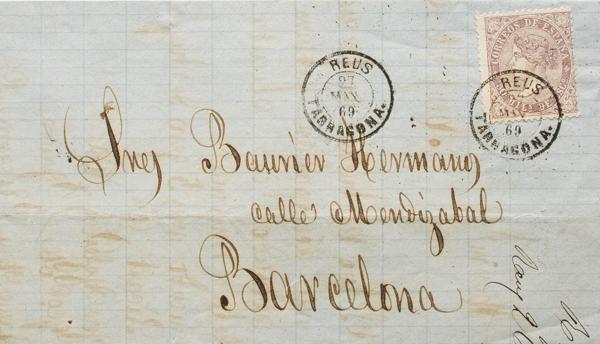 CORREOS DE ESPAÑA
REUS
27
MAY
69
TARRAGONA.
REUS
MAY
69
TARRAGONA.
Sres Baurier Hermanos
calle Mendizabal
Barcelona